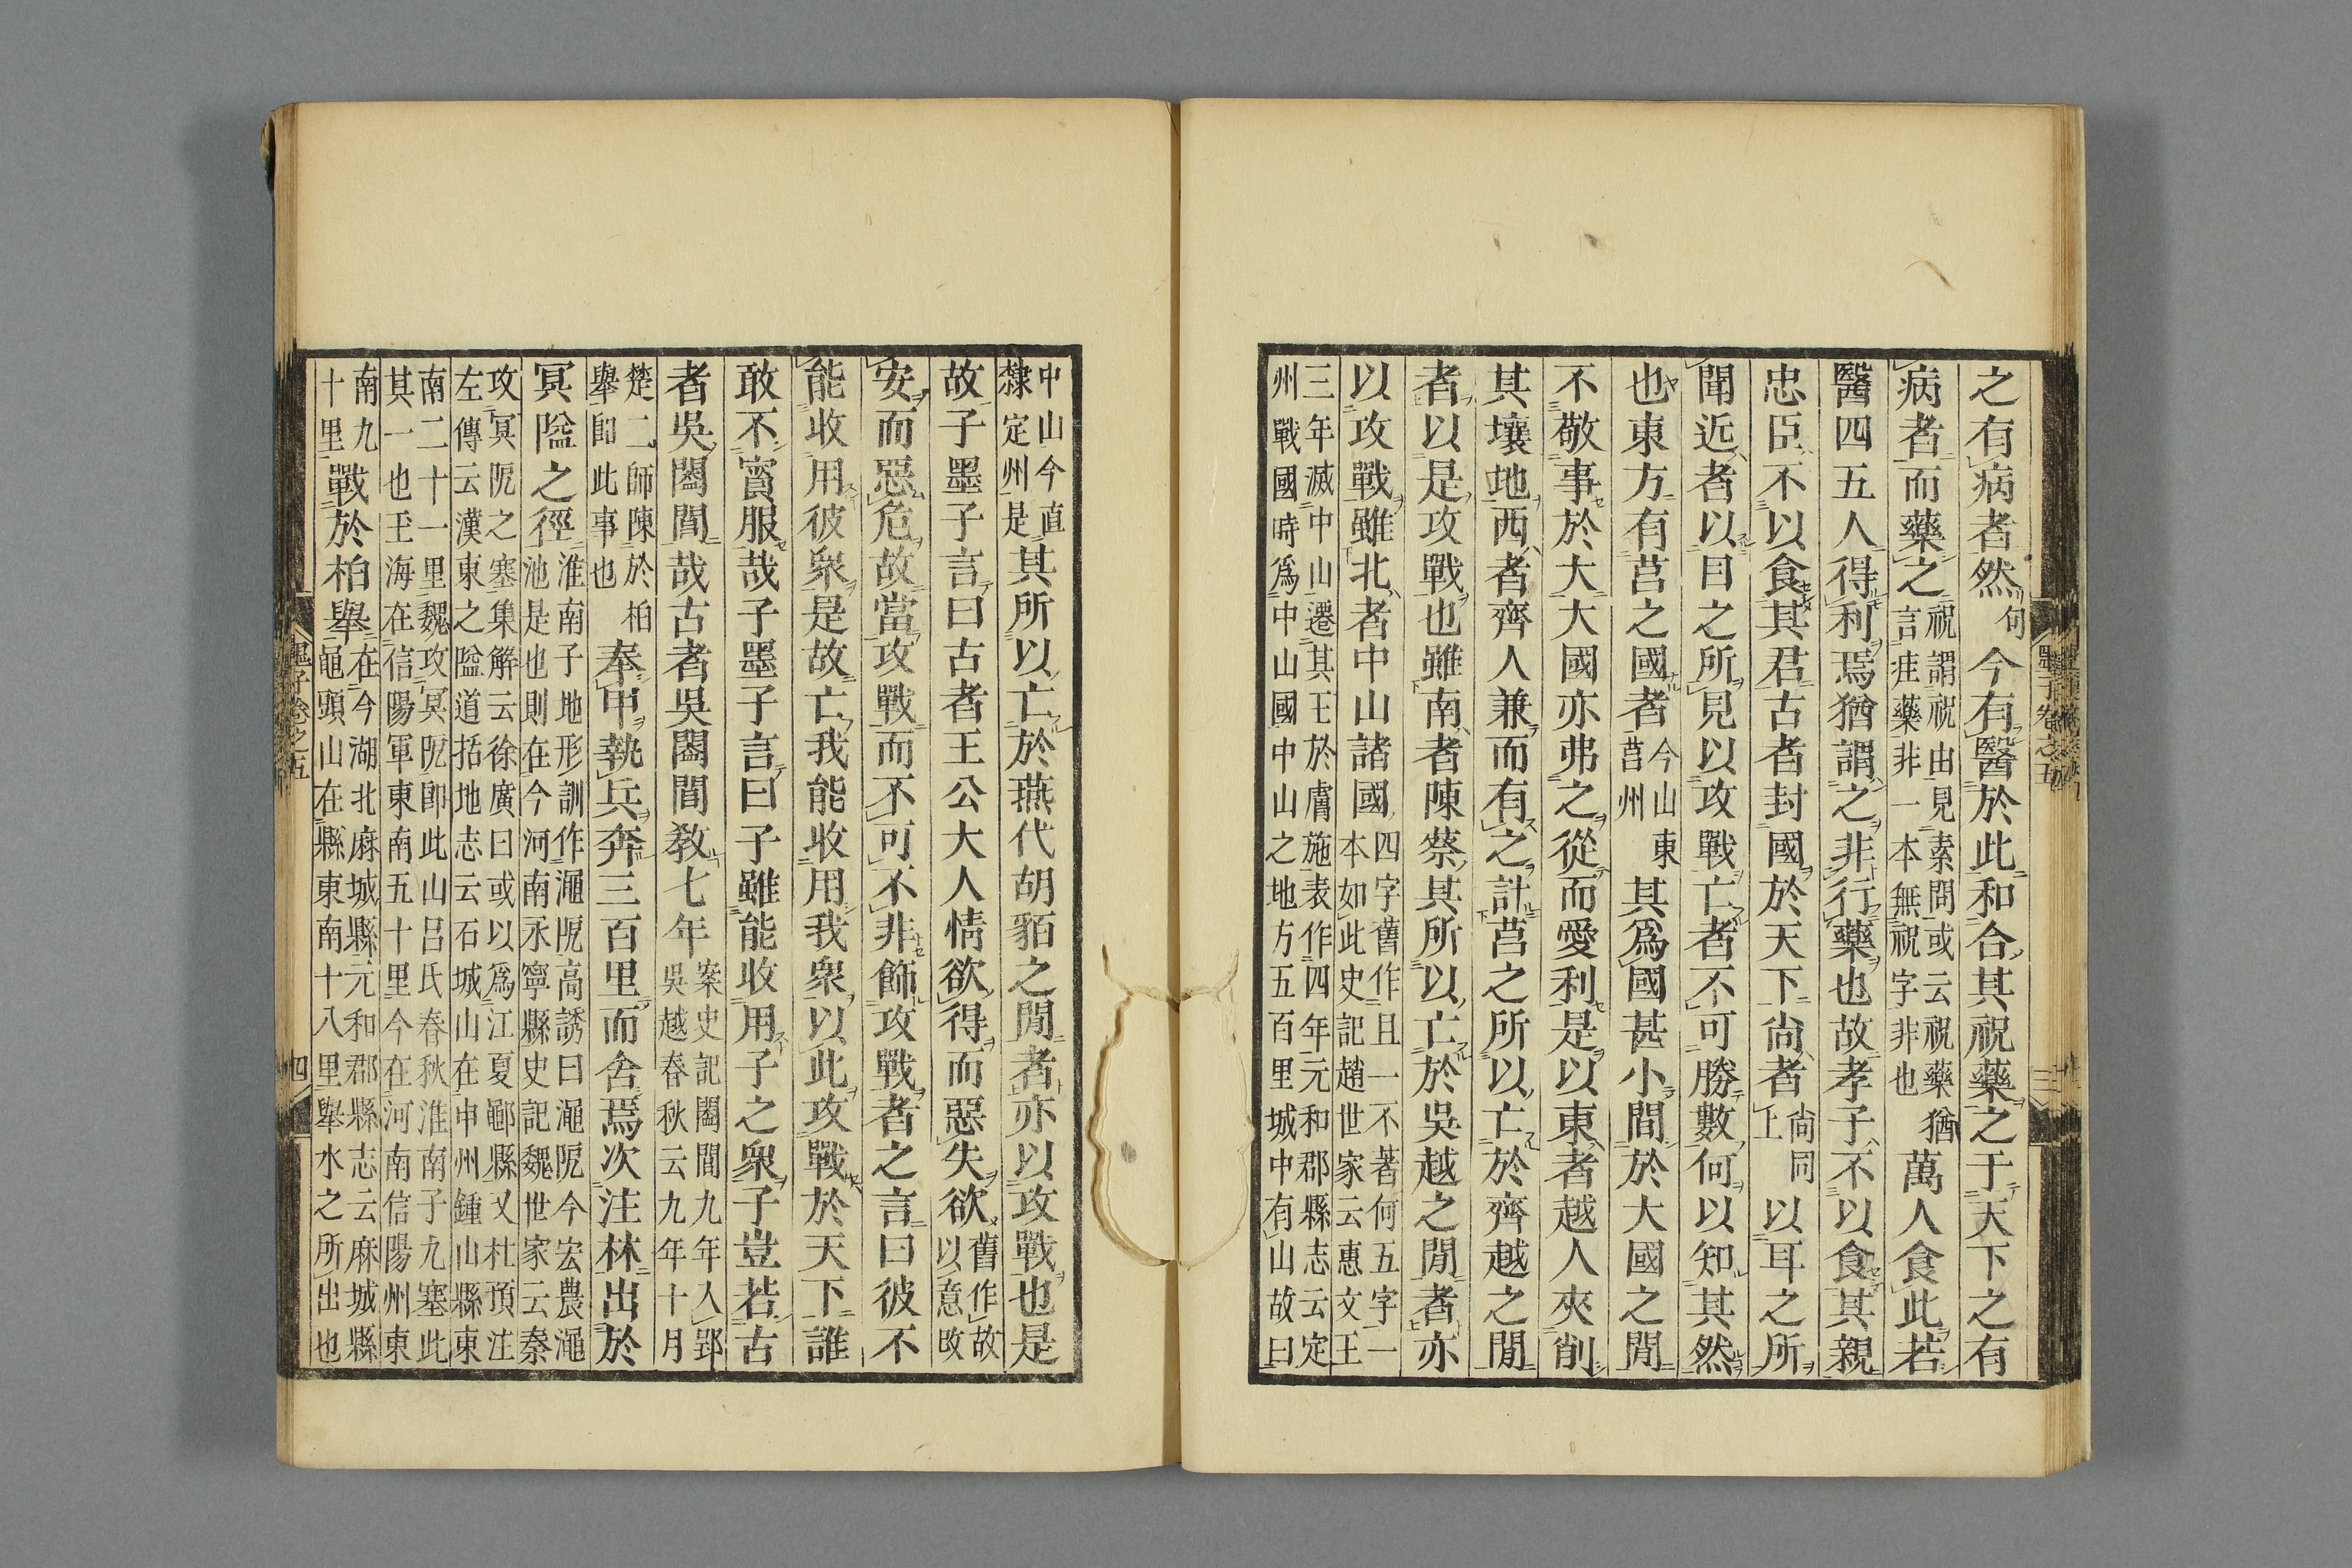 之有病者然句今有醫於此和合其祝藥之于天下之有
病者而藥之祝謂祝由見素問或云祝藥猶言疰藥非一本無祝字非也萬人食此若
醫四五人得利焉猶謂之非行藥也故孝子不以食其親
忠臣不以食其君古者封國於天下尙者尙同上以耳之所
聞近者以目之所見以攻戰亡者不可勝數何以知其然
也東方有莒之國者今山東莒州其爲國甚小閒於大國之閒
不敬事於大大國亦弗之從而愛利是以東者越人夾削
其壤地西者齊人兼而有之計莒之所以亡於齊越之閒
者以是攻戰也雖南者陳蔡其所以亡於吳越之閒者亦
以攻戰雖北者中山諸國四字舊作且一不著何五字一本如此史記趙世家云惠文王
三年滅中山遷其王於膚施表作四年元和郡縣志云定州戰國時爲中山國中山之地方五百里城中有山故曰
中山今直隸定州是其所以亡於燕代胡貊之閒者亦以攻戰也是
故子墨子言曰古者王公大人情欲得而惡失欲舊作故以意改
安而惡危故當攻戰而不可不非飾攻戰者之言曰彼不
能收用彼衆是故亡我能收用我衆以此攻戰於天下誰
敢不賓服哉子墨子言曰子雖能收用子之衆子豈若古
者吳闔閭哉古者吳闔閭敎七年案史記闔閭九年入郢吳越春秋云九年十月
楚二師陳於柏舉卽此事也奉甲執兵奔三百里而舍焉次注林出於
冥隘之徑淮南子地形訓作澠阨高誘曰澠阨今宏農澠池是也則在今河南永寧縣史記魏世家云秦
攻冥阨之塞集解云徐廣曰或以爲江夏鄳縣又杜預注左傳云漢東之隘道括地志云石城山在申州鍾山縣東
南二十一里魏攻冥阨卽此山呂氏春秋淮南子九塞此其一也玉海在信陽軍東南五十里今在河南信陽州東
南九十里戰於柏舉在今湖北麻城縣元和郡縣志云麻城縣龜頭山在縣東南十八里舉水之所出也
墨子卷之五
三
墨子卷之五
四